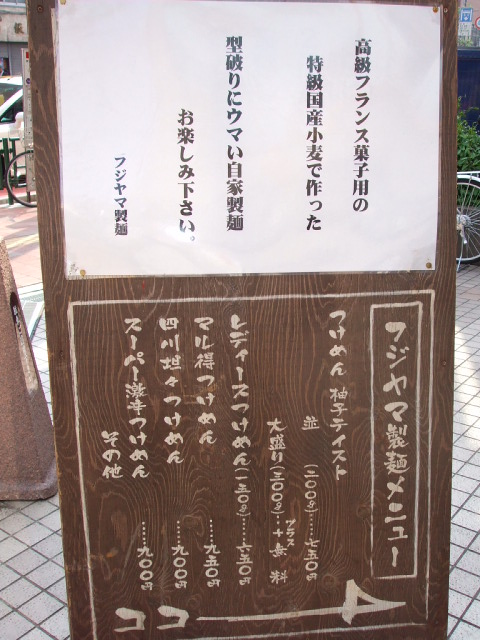 高級フランス菓子用の
特級国産小麦で作った
型破りにウマい自家製麺
お楽しみ下さい。
フジヤマ製麺
フジヤマ製麺メニュー
つけめん 柚子テイスト
並 (二〇〇g)……七五〇円
大盛り(三〇〇g)…プラス+無料
レディースつけめん(一五〇g)…六五〇円
マル得つけめん……九五〇円
四川坦々つけめん……九〇〇円
スーパー激辛つけめん……九〇〇円
その他
ココ